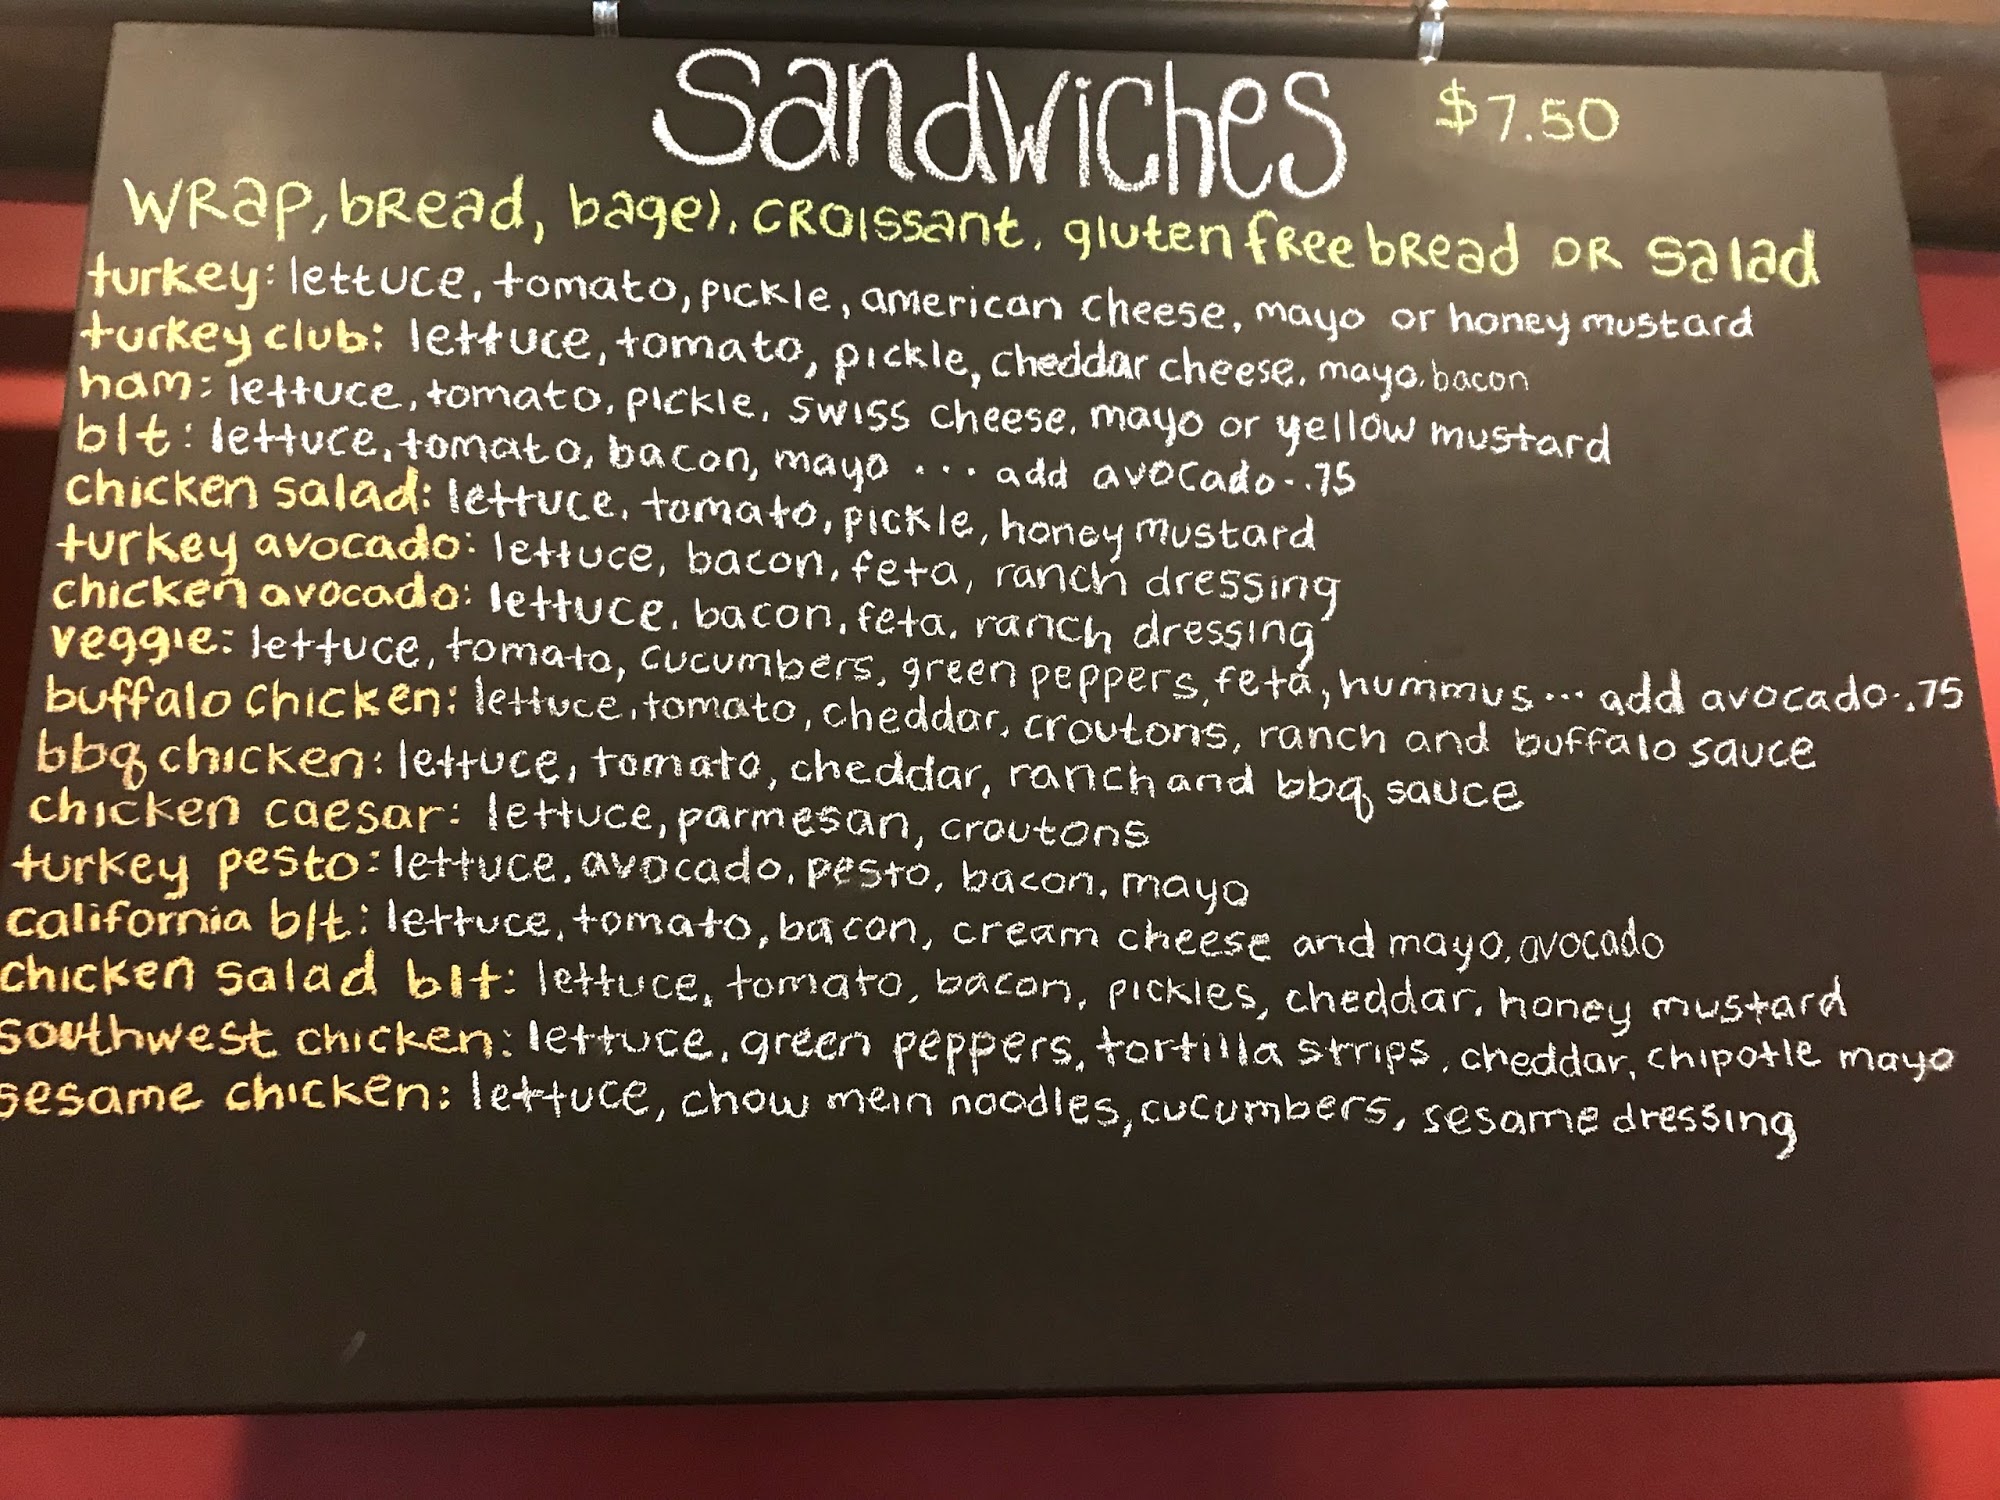 Sandwiches $7.50
WRap, bRead, bagel, CROISSant, gluten fRee bRead OR Salad
turkey: lettuce, tomato, pickle, american cheese, mayo or honey mustard
turkey club: lettuce, tomato, pickle, cheddar cheese, mayo, bacon
ham: lettuce, tomato, pickle, swiss cheese, mayo or yellow mustard
blt: lettuce, tomato, bacon, mayo ... add avocado-.75
chicken salad: lettuce, tomato, pickle, honey mustard
turkey avocado: lettuce, bacon, feta, ranch dressing
chicken avocado: lettuce, bacon, feta, ranch dressing
veggie: lettuce, tomato, cucumbers, green peppers, feta, hummus... add avocado-.75
buffalo chicken: lettuce, tomato, cheddar, croutons, ranch and buffalo sauce
bbq chicken: lettuce, tomato, cheddar, ranch and bbq sauce
chicken caesar: lettuce, parmesan, croutons
turkey pesto: lettuce, avocado, pesto, bacon, mayo
california blt: lettuce, tomato, bacon, cream cheese and mayo, avocado
chicken salad blt: lettuce, tomato, bacon, pickles, cheddar, honey mustard
southwest chicken: lettuce, green peppers, tortilla strips, cheddar, chipotle mayo
sesame chicken: lettuce, chow mein noodles, cucumbers, sesame dressing